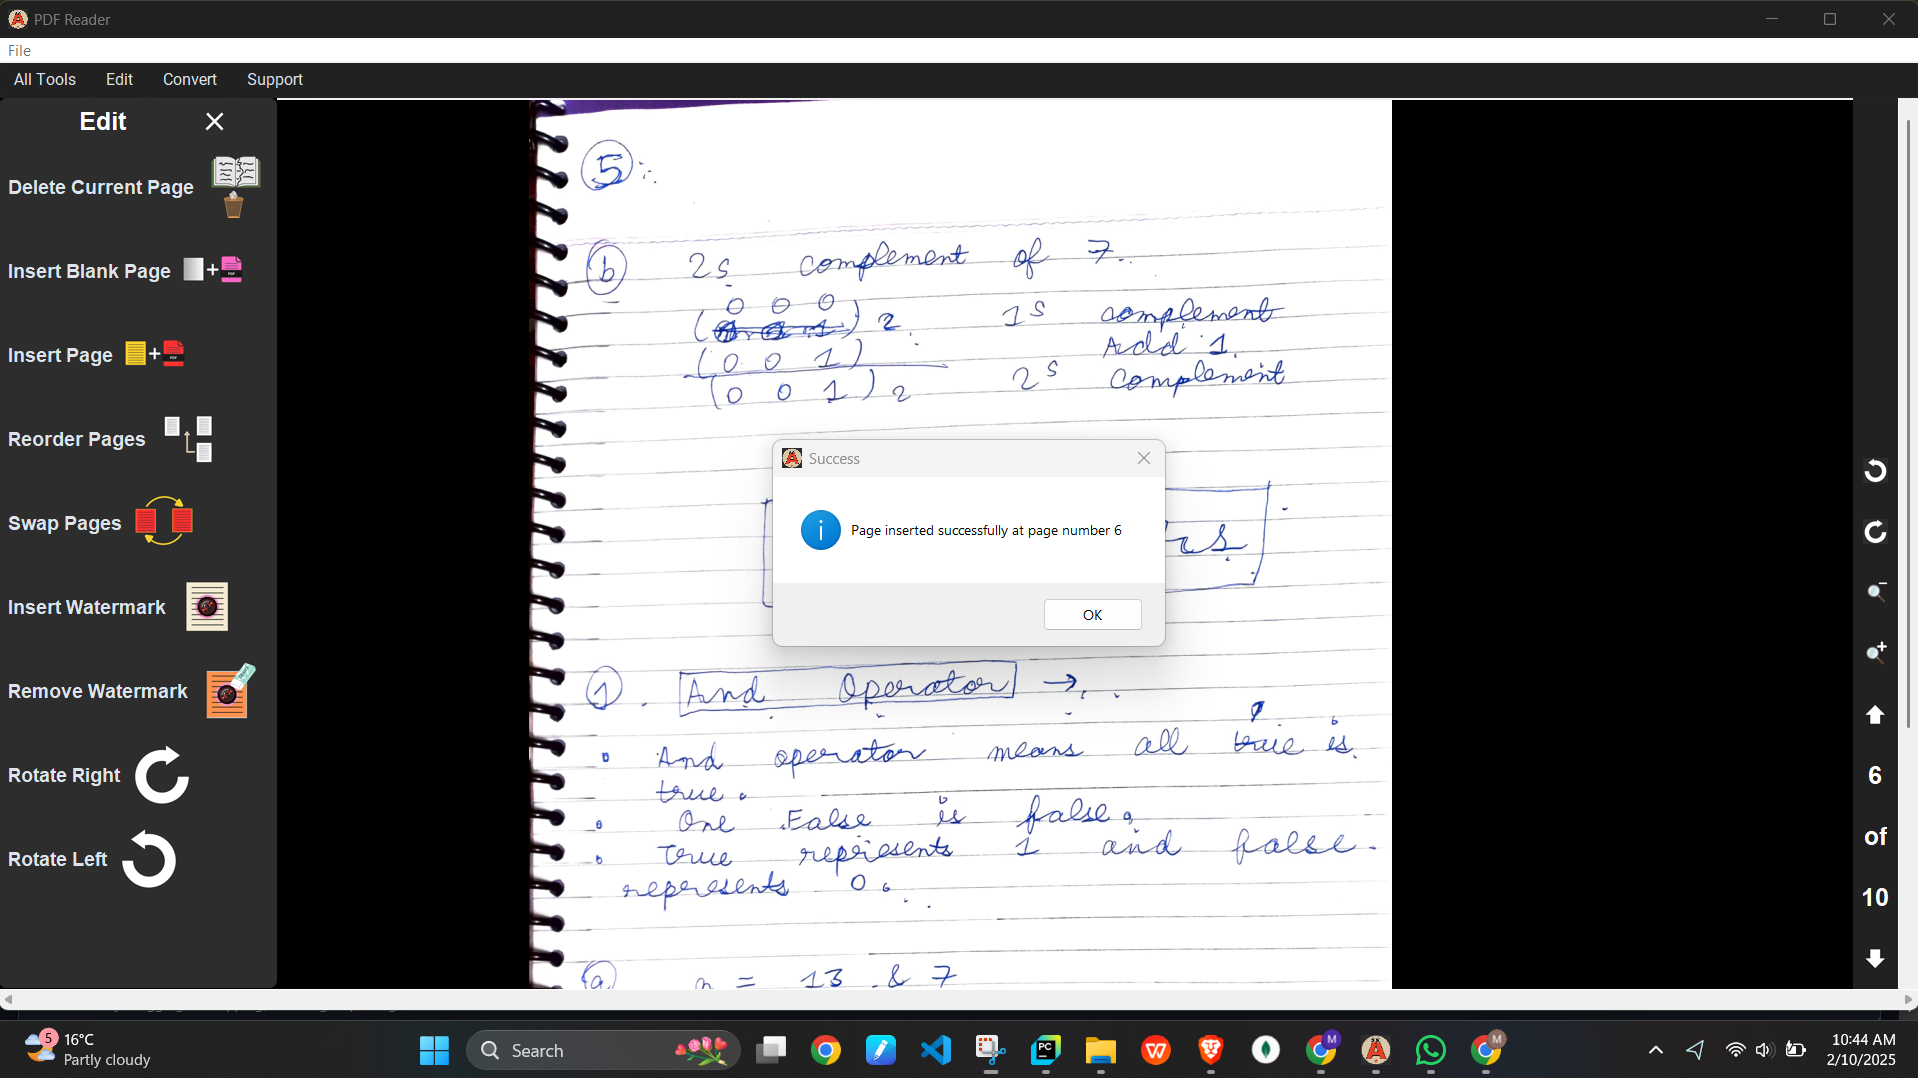 PDF Reader
File
All Tools Edit Convert Support
Edit
Delete Current Page
Insert Blank Page
Insert Page
Reorder Pages
Swap Pages
Insert Watermark
Remove Watermark
Rotate Right
Rotate Left
5
b 2s complement of 7.
0 0 0
( ) 2 1s complement
(0 0 1) Add 1.
(0 0 1) 2 2s complement
Success
Page inserted successfully at page number 6
OK
1. And Operator →
And operator means all true is
true.
One False is false.
True represents 1 and false
represents 0.
a n = 13 & 7
6
of
10
5
16°C
Partly cloudy
Search
10:44 AM
2/10/2025